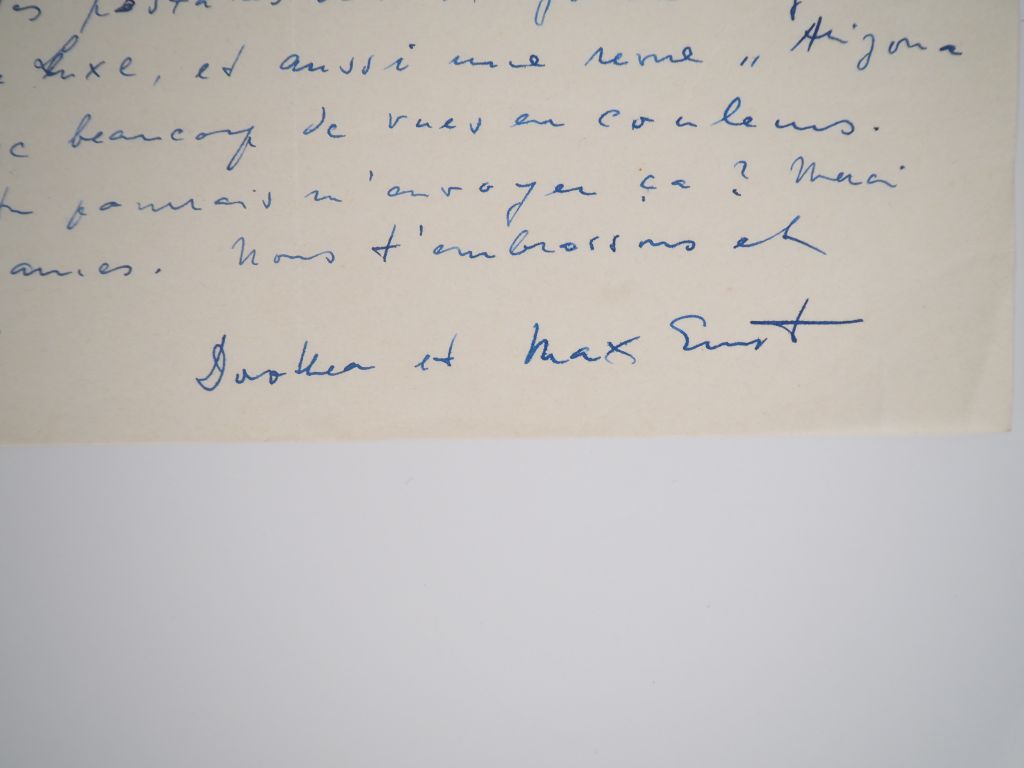 luxe, et aussi une revue „ Arizona
beaucoup de vues en couleurs.
pourrais m'envoyer ça ? Merci
Nous t'embrassons et
Dorothea et Max Ernst